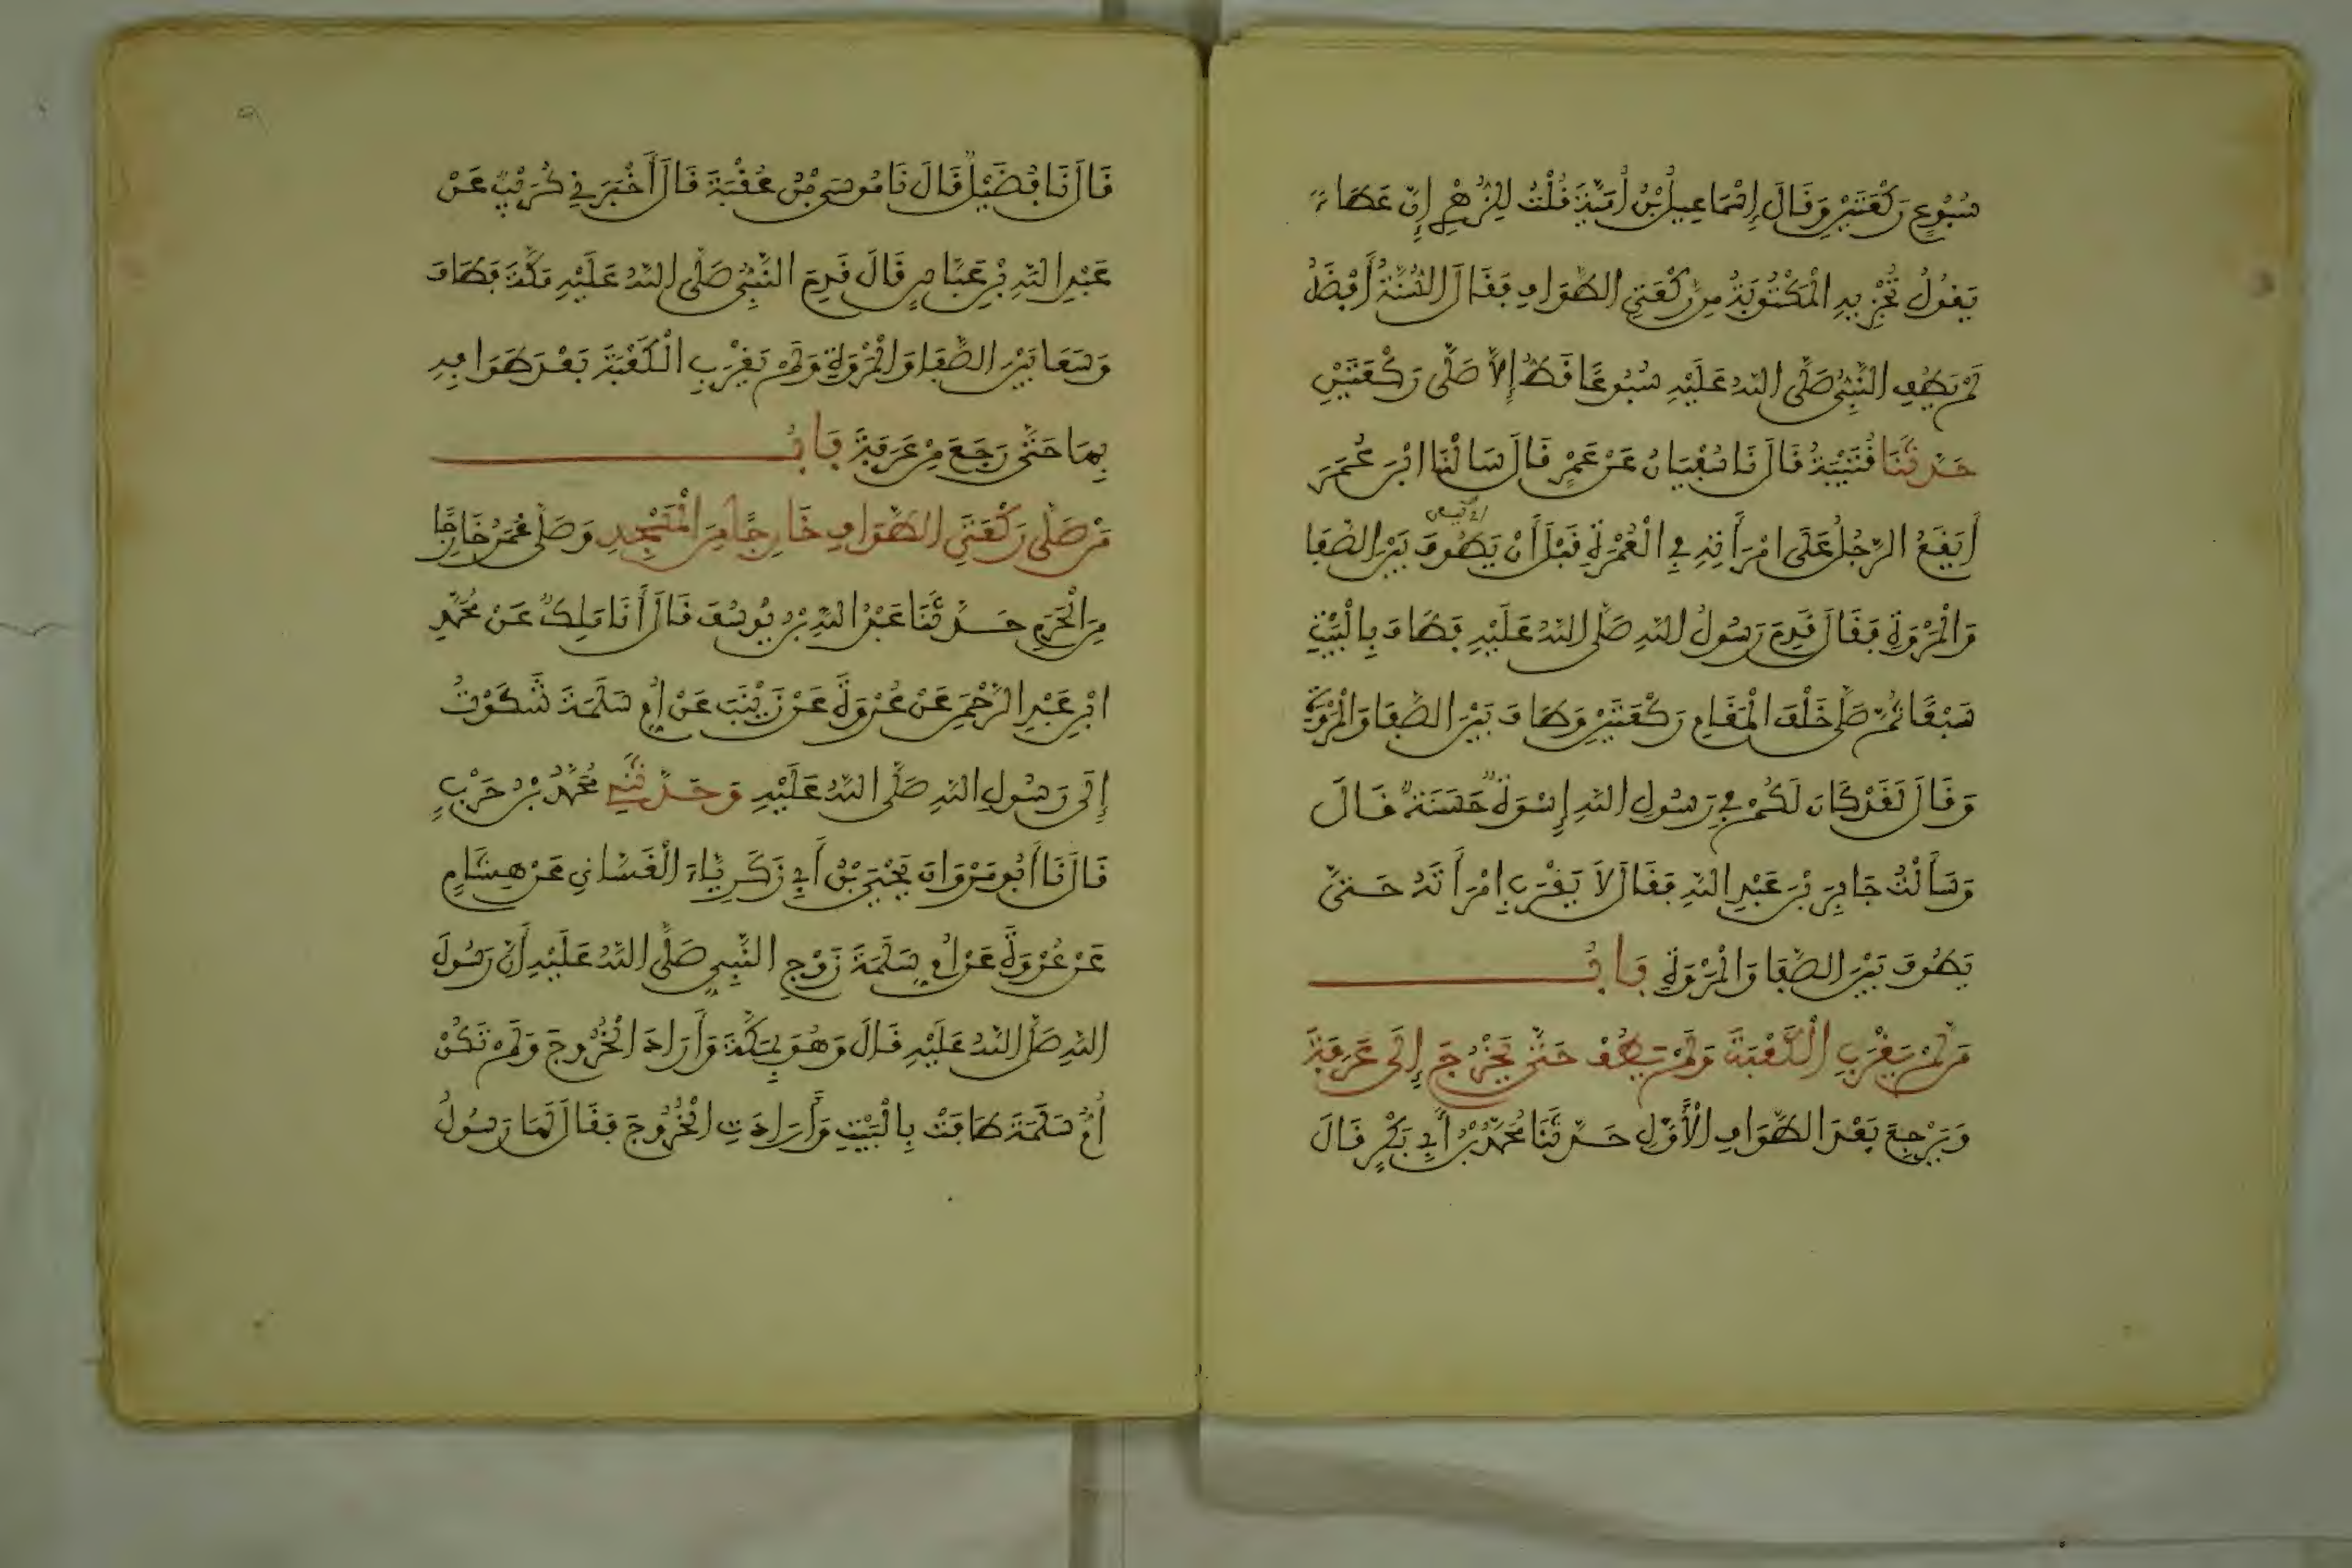 سُبُوعٍ رَكْعَتَيْنِ وَقَالَ إِسْمَاعِيلُ بْنُ أُمَيَّةَ قُلْتُ لِلزُّهْرِيِّ إِنَّ عَطَاءً
يَقُولُ تُجْزِيهِ الْمَكْتُوبَةُ مِن رَكْعَتَيِ الطَّوَافِ فَقَالَ السُّنَّةُ أَفْضَلُ
لَمْ يَطُفِ النَّبِيُّ صَلَّى اللهُ عَلَيْهِ سُبُوعًا قَطُّ إِلاَّ صَلَّى رَكْعَتَيْنِ
حَدَّثَنَا قُتَيْبَةُ قَالَ نَا سُفْيَانُ عَنْ عَمْرٍو قَالَ سَأَلْنَا ابْنَ عُمَرَ
أَيَقَعُ الرَّجُلُ عَلَى امْرَأَتِهِ فِي الْعُمْرَةِ قَبْلَ أَنْ يَطُوفَ بَيْنَ الصَّفَا
وَالْمَرْوَةِ فَقَالَ قَدِمَ رَسُولُ اللهِ صَلَّى اللهُ عَلَيْهِ فَطَافَ بِالْبَيْتِ
سَبْعًا ثُمَّ صَلَّى خَلْفَ الْمَقَامِ رَكْعَتَيْنِ وَطَافَ بَيْنَ الصَّفَا وَالْمَرْوَةِ
وَقَالَ لَقَدْ كَانَ لَكُمْ فِي رَسُولِ اللهِ إِسْوَةٌ حَسَنَةٌ قَالَ
وَسَأَلْتُ جَابِرَ بْنَ عَبْدِ اللهِ فَقَالَ لاَ يَقْرَبِ امْرَأَتَهُ حَتَّى
يَطُوفَ بَيْنَ الصَّفَا وَالْمَرْوَةِ بَابُ
مَن لَّمْ يَقْرَبِ الْكَعْبَةَ وَلَمْ يَطُفْ حَتَّى يَخْرُجَ إِلَى عَرَفَةَ
وَيَرْجِعَ بَعْدَ الطَّوَافِ الْأَوَّلِ حَدَّثَنَا مُحَمَّدُ بْنُ أَبِي بَكْرٍ قَالَ
قَالَ نَا فُضَيْلٌ قَالَ نَا مُوسَى بْنُ عُقْبَةَ قَالَ أَخْبَرَنِي كُرَيْبٌ عَنْ
عَبْدِ اللهِ بْنِ عَبَّاسٍ قَالَ قَدِمَ النَّبِيُّ صَلَّى اللهُ عَلَيْهِ مَكَّةَ فَطَافَ
وَسَعَا بَيْنَ الصَّفَا وَالْمَرْوَةِ وَلَمْ يَقْرَبِ الْكَعْبَةَ بَعْدَ طَوَافِهِ
بِهَا حَتَّى رَجَعَ مِنْ عَرَفَةَ بَابُ
مَنْ صَلَّى رَكْعَتَيِ الطَّوَافِ خَارِجًا مِنَ الْمَسْجِدِ وَصَلَّى عُمَرُ خَارِجًا
مِنَ الْحَرَمِ حَدَّثَنَا عَبْدُ اللهِ بْنُ يُوسُفَ قَالَ أَنَا مَلِكٌ عَنْ مُحَمَّدِ
ابْنِ عَبْدِ الرَّحْمَنِ عَنْ عُرْوَةَ عَنْ زَيْنَبَ عَنْ أُمِّ سَلَمَةَ شَكَوْتُ
إِلَى رَسُولِ اللهِ صَلَّى اللهُ عَلَيْهِ وَحَدَّثَنِي مُحَمَّدُ بْنُ حَرْبٍ
قَالَ نَا أَبُو مَرْوَانَ يَحْيَى بْنُ أَبِي زَكَرِيَّاءَ الْغَسَّانِي عَنْ هِشَامٍ
عَنْ عُرْوَةَ عَنْ أُمِّ سَلَمَةَ زَوْجِ النَّبِيِّ صَلَّى اللهُ عَلَيْهِ أَنَّ رَسُولَ
اللهِ صَلَّى اللهُ عَلَيْهِ قَالَ وَهُوَ بِمَكَّةَ وَأَرَادَ الْخُرُوجَ وَلَمْ تَكُنْ
أُمُّ سَلَمَةَ طَافَتْ بِالْبَيْتِ وَأَرَادَتِ الْخُرُوجَ فَقَالَ لَهَا رَسُولُ